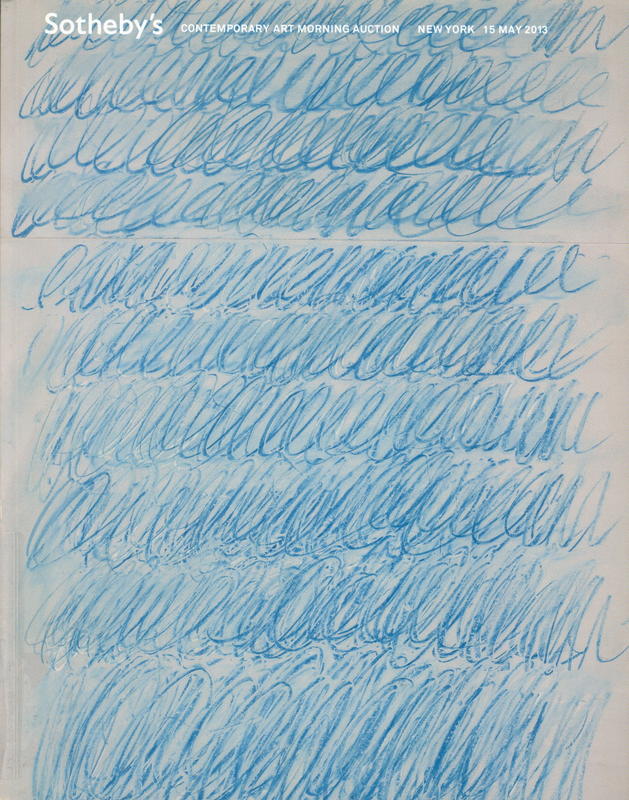 Sotheby's CONTEMPORARY ART MORNING AUCTION NEW YORK 15 MAY 2013